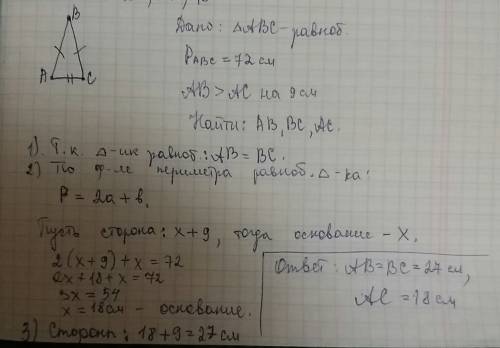 B
A
C
Дано: △ABC - равноб.
P ABC = 72 см
AB > AC на 9 см
Найти: AB, BC, AC.
1). Т.к. △-ик равноб.: AB = BC.
2) По ф-ле периметра равноб. △-ка:
P = 2a + b,
Пусть сторона: x+9, тогда основание - x.
2(x+9)+x = 72
2x+18+x = 72
3x = 54
x = 18см - основание.
3) Стороны: 18+9=27см
Ответ: AB=BC=27см,
AC = 18см